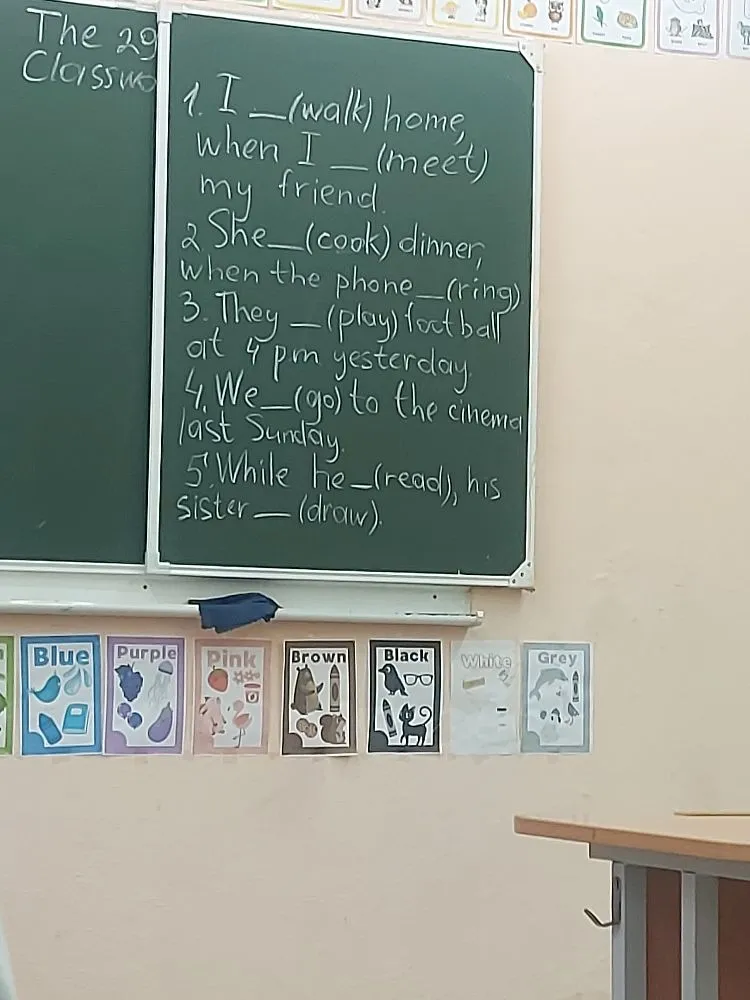 The 29
Classwo
1. I _ (walk) home,
when I _ (meet)
my friend.
2 She _ (cook) dinner,
when the phone _ (ring)
3. They _ (play) football
at 4 pm yesterday.
4. We _ (go) to the cinema
last Sunday.
5. While he _ (read), his
sister _ (draw).
Blue
Purple
Pink
Brown
Black
White
Grey